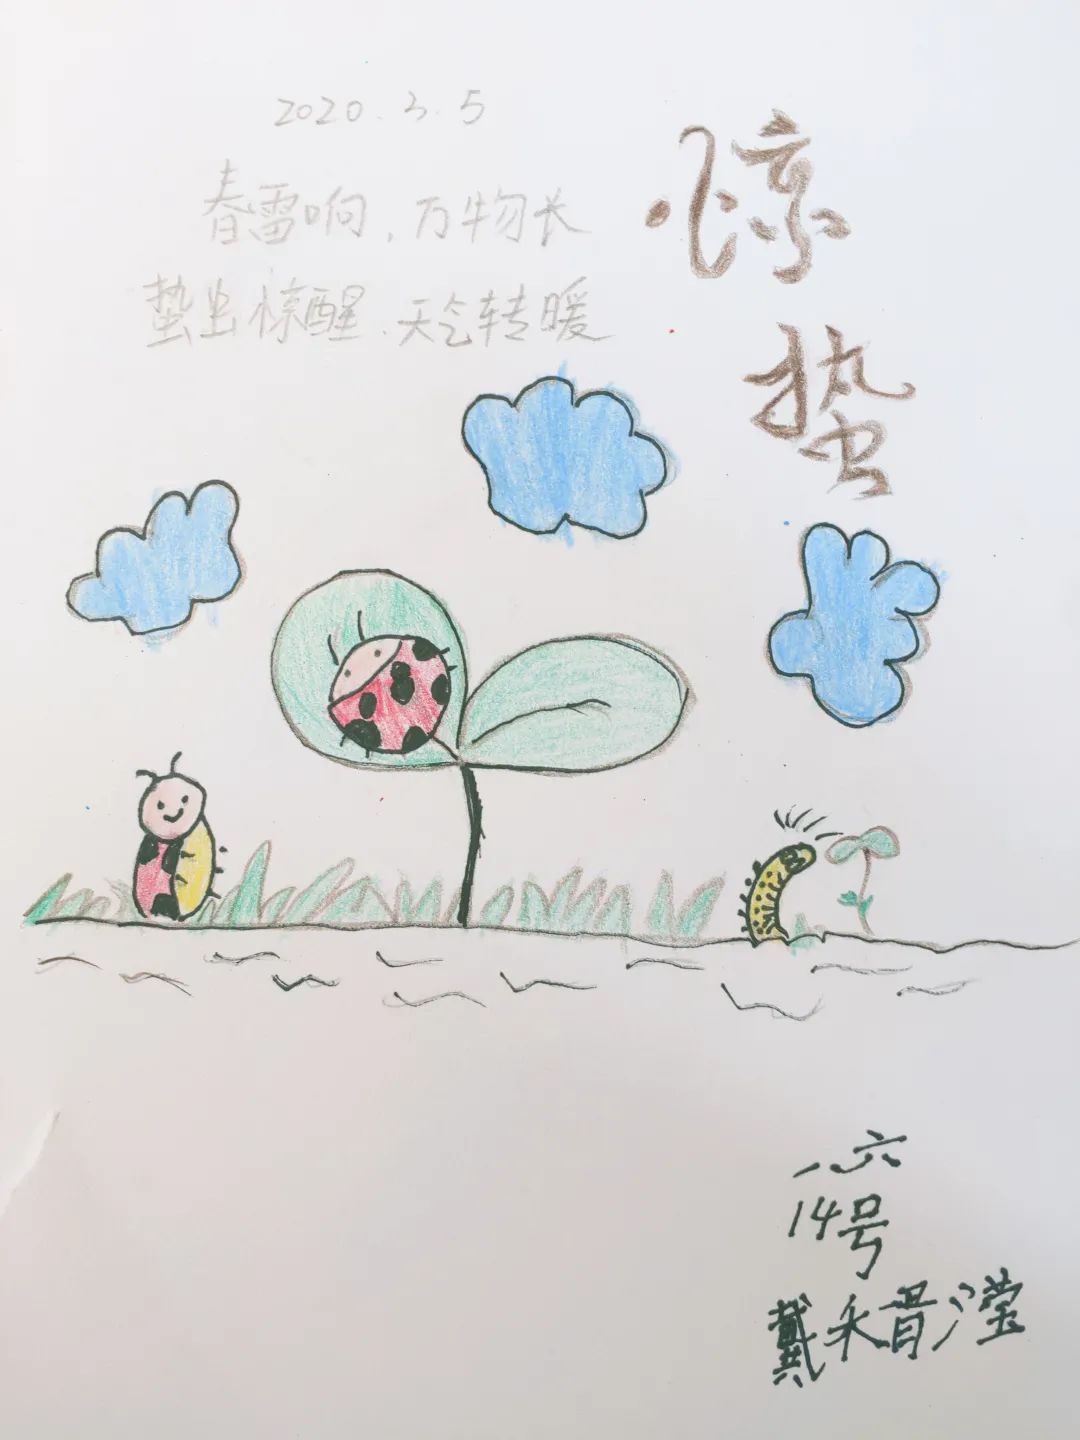 2020.3.5
春雷响，万物长
蛰虫惊醒.天气转暖
惊
蛰
六
14号
戴 滢